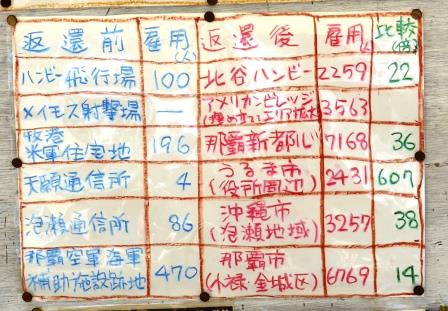 返還前 雇用(人) 返還後 雇用(人) 比較(倍)
ハンビー飛行場 100 北谷ハンビー 2259 22
メイモス射撃場 — アメリカンビレッジ(埋め立てエリア拡大) 3563
牧港米軍住宅地 196 那覇新都心 7168 36
天願通信所 4 うるま市(役所周辺) 2431 607
泡瀬通信所 86 沖縄市(泡瀬地域) 3257 38
那覇空軍海軍補助施設跡地 470 那覇市(小禄・金城区) 6769 14